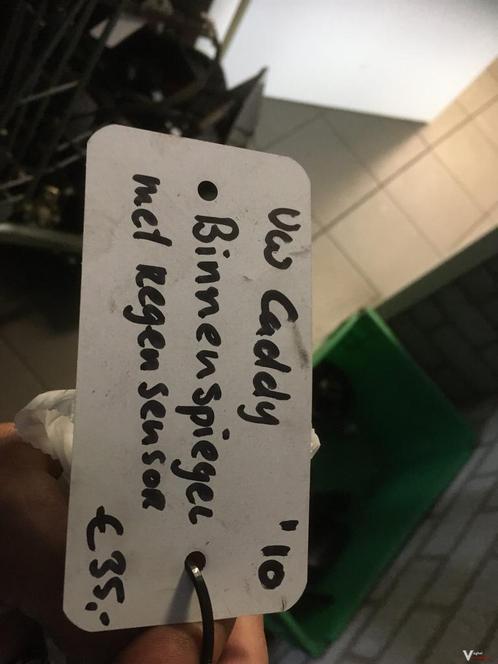 VW Caddy '10
Binnenspiegel
met Regensensor
€ 35,-